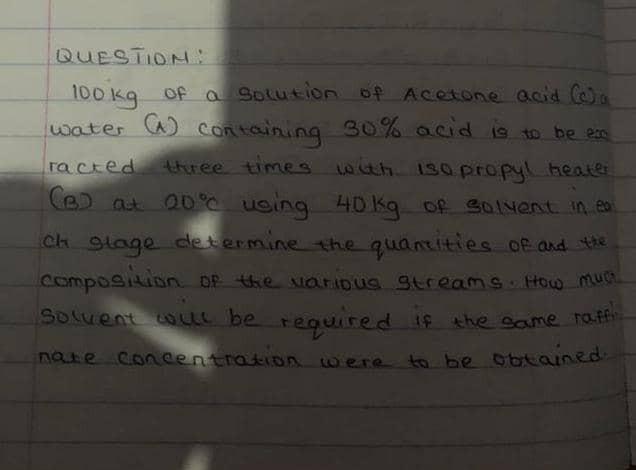 QUESTION:
100kg of a Solution of Acetone acid (c) a
water (A) containing 30% acid is to be ex
racted three times with isopropyl heater
(B) at 20°c using 40kg of solvent in ea
ch stage determine the quantities of and the
composition of the various streams. How much
Solvent will be required if the same raffi
nate concentration were to be obtained.